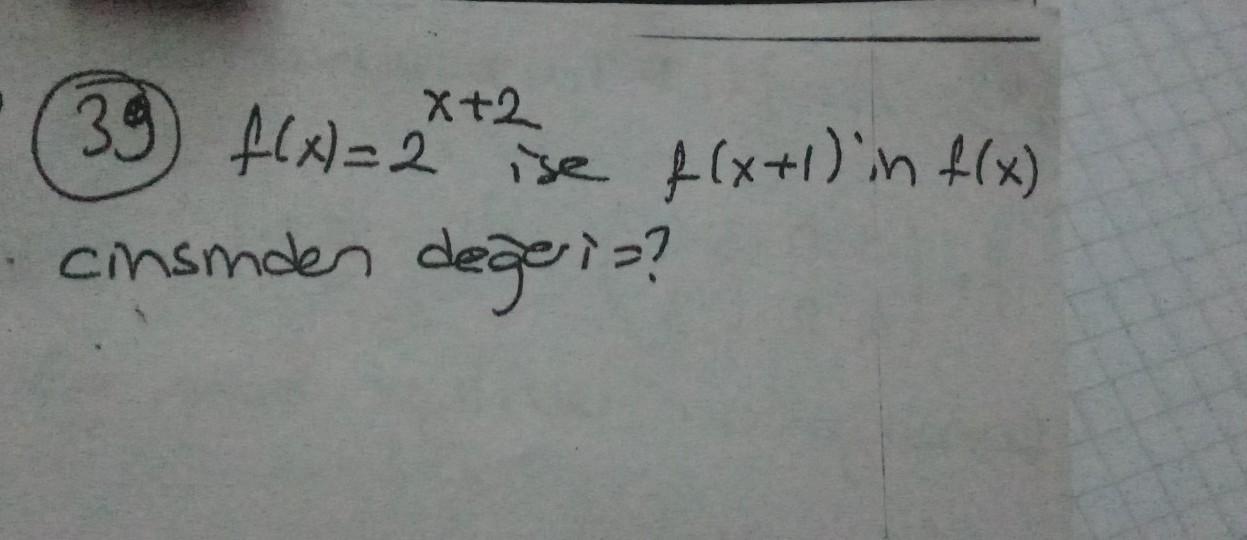 39 f(x)=2^{x+2} ise f(x+1)'in f(x)
cinsinden değeri=?